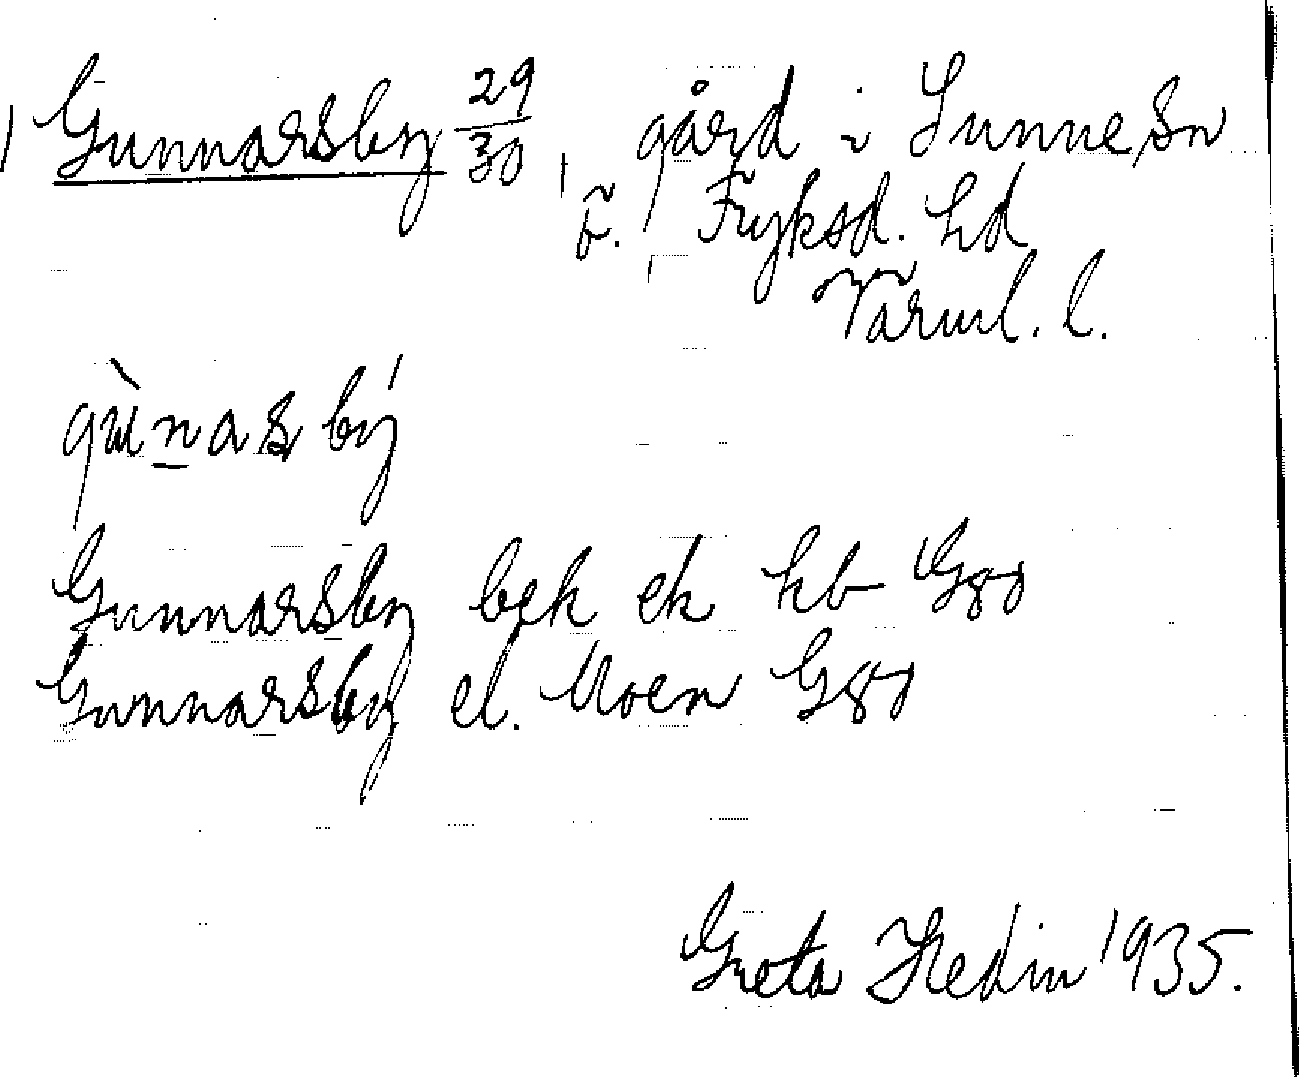 1 Gunnarsby 29/30, gård i Sunne sn
F. Fryksd. hd
Värml. l.
gùnas bý
Gunnarsby bek ek kb G80
Gunnarsby el. Moen G80
Greta Hedin 1935.